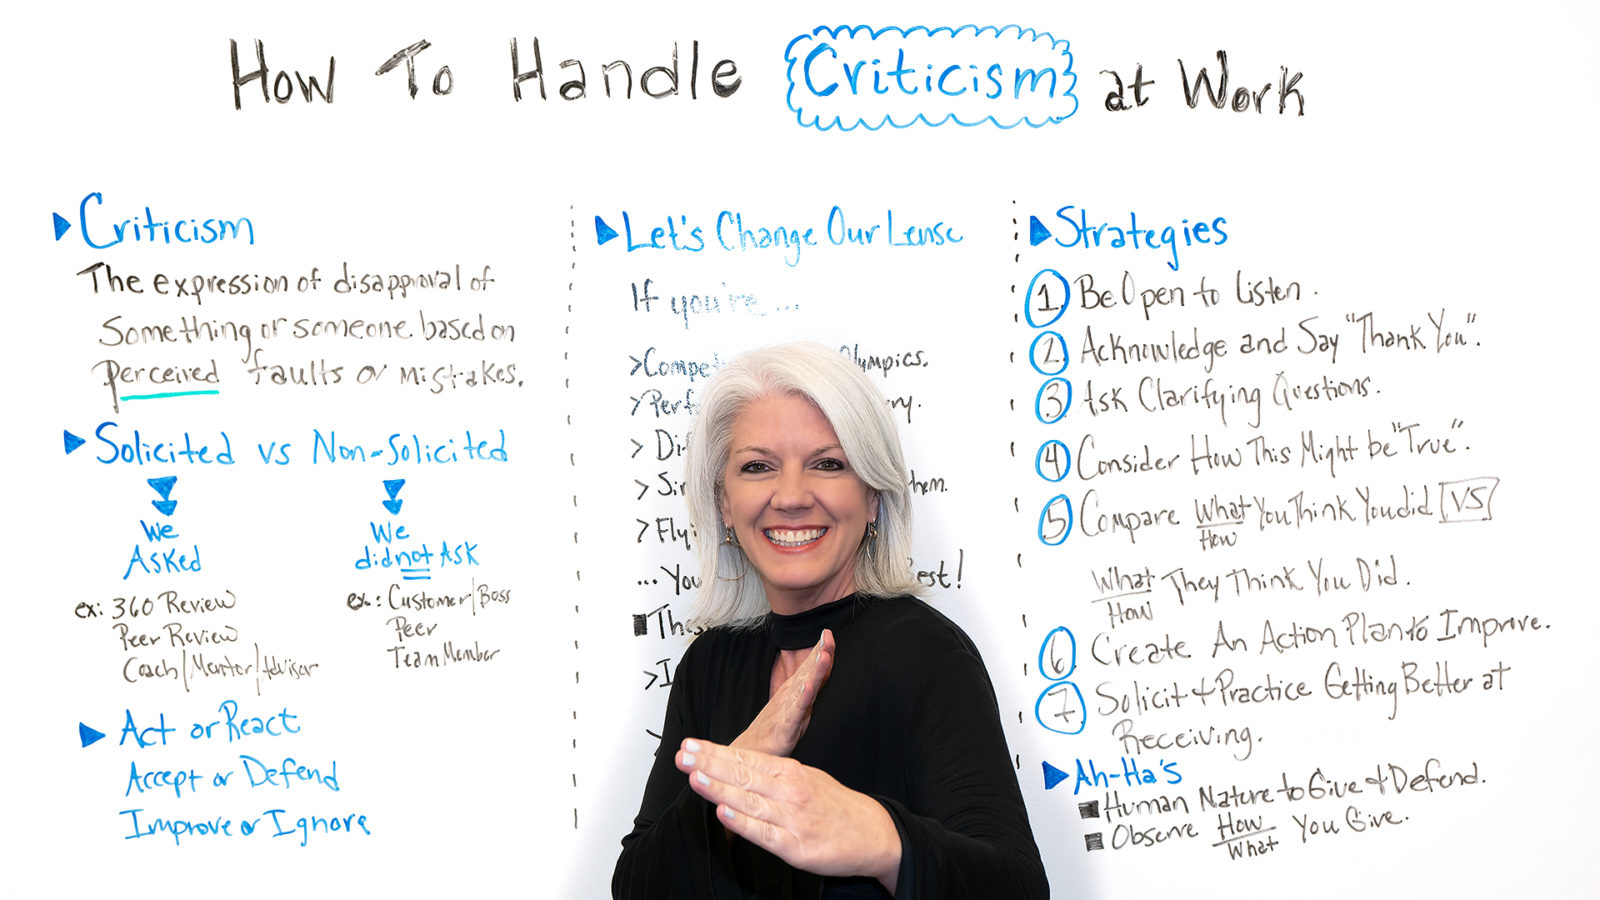 How To Handle Criticism at Work
Criticism
The expression of disapproval of
Something or someone based on
perceived faults or mistakes.
Solicited vs Non-Solicited
We
Asked
ex: 360 Review
Peer Review
Coach/Mentor/Advisor
We
did not Ask
ex.: Customer/Boss
Peer
Team Member
Act or React
Accept or Defend
Improve or Ignore
Let's Change Our Lense
If you're ...
>Compet lympics.
>Perf ry.
> Di
> Si hem.
> Flyi
... You est!
Thes
>I
Strategies
1. Be Open to Listen.
2. Acknowledge and Say "Thank You".
3 Ask Clarifying Questions.
4 Consider How This Might be "True".
5 Compare What You Think You did VS
How
What They Think You Did.
How
6. Create An Action Plan to Improve.
7. Solicit + Practice Getting Better at
Receiving.
Ah-Ha's
Human Nature to Give & Defend.
Observe How You Give.
What